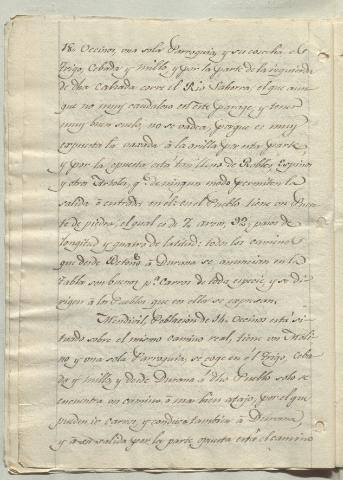 18 Vecinos, una sola Parroquia, y su cosecha es
trigo, Cebada y millo, y por la parte de la izquierda
de dha Calzada corre el Rio Zadorra, el que aun
que no muy caudaloso en este parage, y tener
muy buen suelo, no se vadea, porque es muy
expuesta la vajada à la orilla por esta parte
y por la opuesta està tan lleno de Robles, Espinos
y otros Arboles, qe de ningun modo permiten la
salida ò entrada en èl: en el Pueblo tiene un Puen
te de piedra, el qual es de 7 arcos, 92 pasos de
longitud y quatro de latitud: todos los caminos
que desde Betoño à Durana se anuncian en la
tabla son buenos pa Carros de toda especie, y se di
rigen à los Pueblos que en ella se expresan.
Mendivil, Poblacion de 14 Vecinos està si
tuado sobre el mismo camino real, tiene un Moli
no y una sola Parroquia, se coge en èl Trigo, Ceba
da y millo, y desde Durana à dho Pueblo solo se
encuentra un camino ò mas bien atajo, por el que
pueden ir carros, y conduce tambien à Durana,
y à su salida por la parte opuesta està el camino